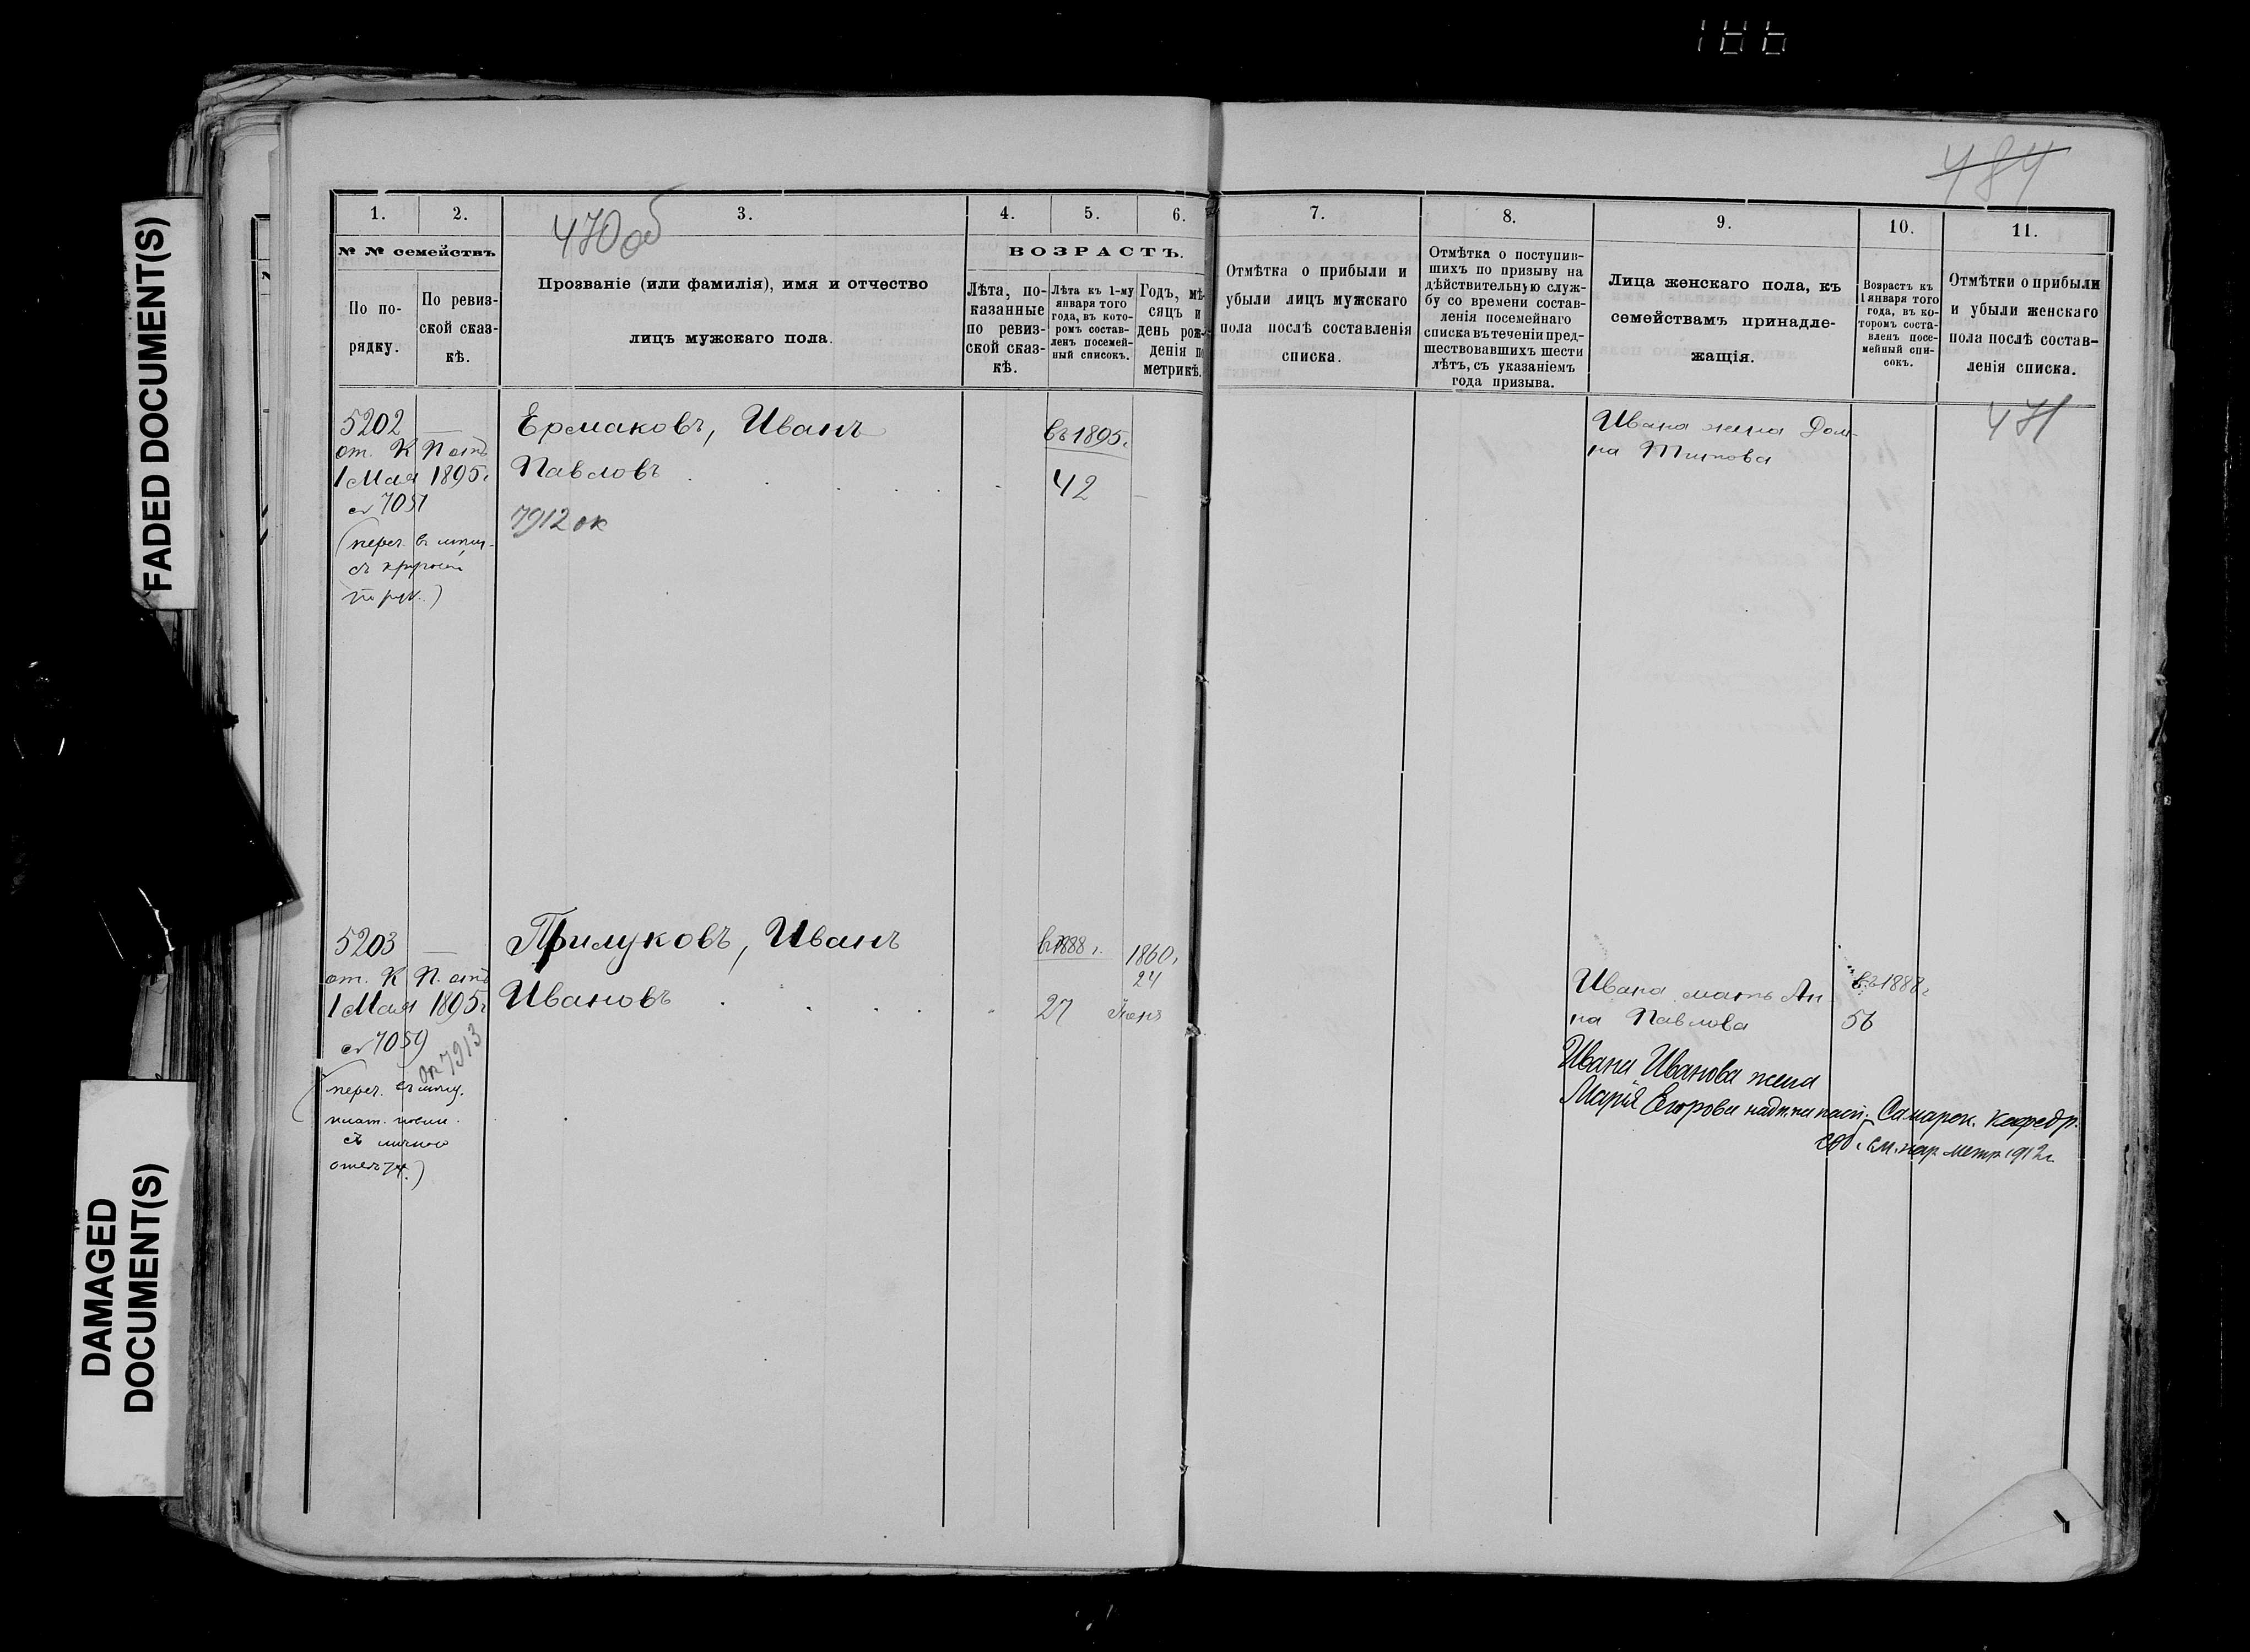 FADED DOCUMENT(S)
DAMAGED
DOCUMENT(S)
484
470 об
1.
2.
3.
4.
5.
6.
№ № семействъ
По по-
рядку.
По ревиз-
ской сказ-
кѣ.
Прозваніе (или фамилія), имя и отчество
лицъ мужскаго пола.
ВОЗРАСТЪ.
Лѣта, по-
казанные
по ревиз-
ской сказ-
кѣ.
Лѣта къ 1-му
января того
года, въ кото-
ромъ состав-
ленъ посемей-
ный списокъ.
Годъ, мѣ-
сяцъ и
день рож-
денія п
метрикѣ.
7.
8.
9.
10.
11.
Отмѣтка о прибыли и
убыли лицъ мужскаго
пола послѣ составленія
списка.
Отмѣтка о поступив-
шихъ по призыву на
дѣйствительную служ-
бу со времени состав-
ленія посемейнаго
списка въ теченіи пред-
шествовавшихъ шести
лѣтъ, съ указаніемъ
года призыва.
Лица женскаго пола, къ
семействамъ принадле-
жащія.
Возрастъ къ
1 января того
года, въ ко-
торомъ соста-
вленъ посе-
мейный спи-
сокъ.
Отмѣтки о прибыли
и убыли женскаго
пола послѣ состав-
ленія списка.
471
5202 —
от. К. П. отъ
1 Мая 1895 г.
7051
(переч. въ
Ермаковъ, Иванъ
Павловъ
7912 ок
въ 1895 г.
42
—
Ивана жена Дом-
на Титова
5203 —
от. К. П. отъ
1 Мая 1895 г.
7059
ок 7913
(переч. въ
Прилуковъ, Иванъ
Ивановъ
въ 1888 г.
27
1860 г.
24
Іюня
Ивана мать Ан
на Павлова
въ 1888 г.
56
Ивана Иванова жена
Марія Егорова надп. на пасп. Самарск. кафедр.
соб. см. пар. метр. 1912 г.